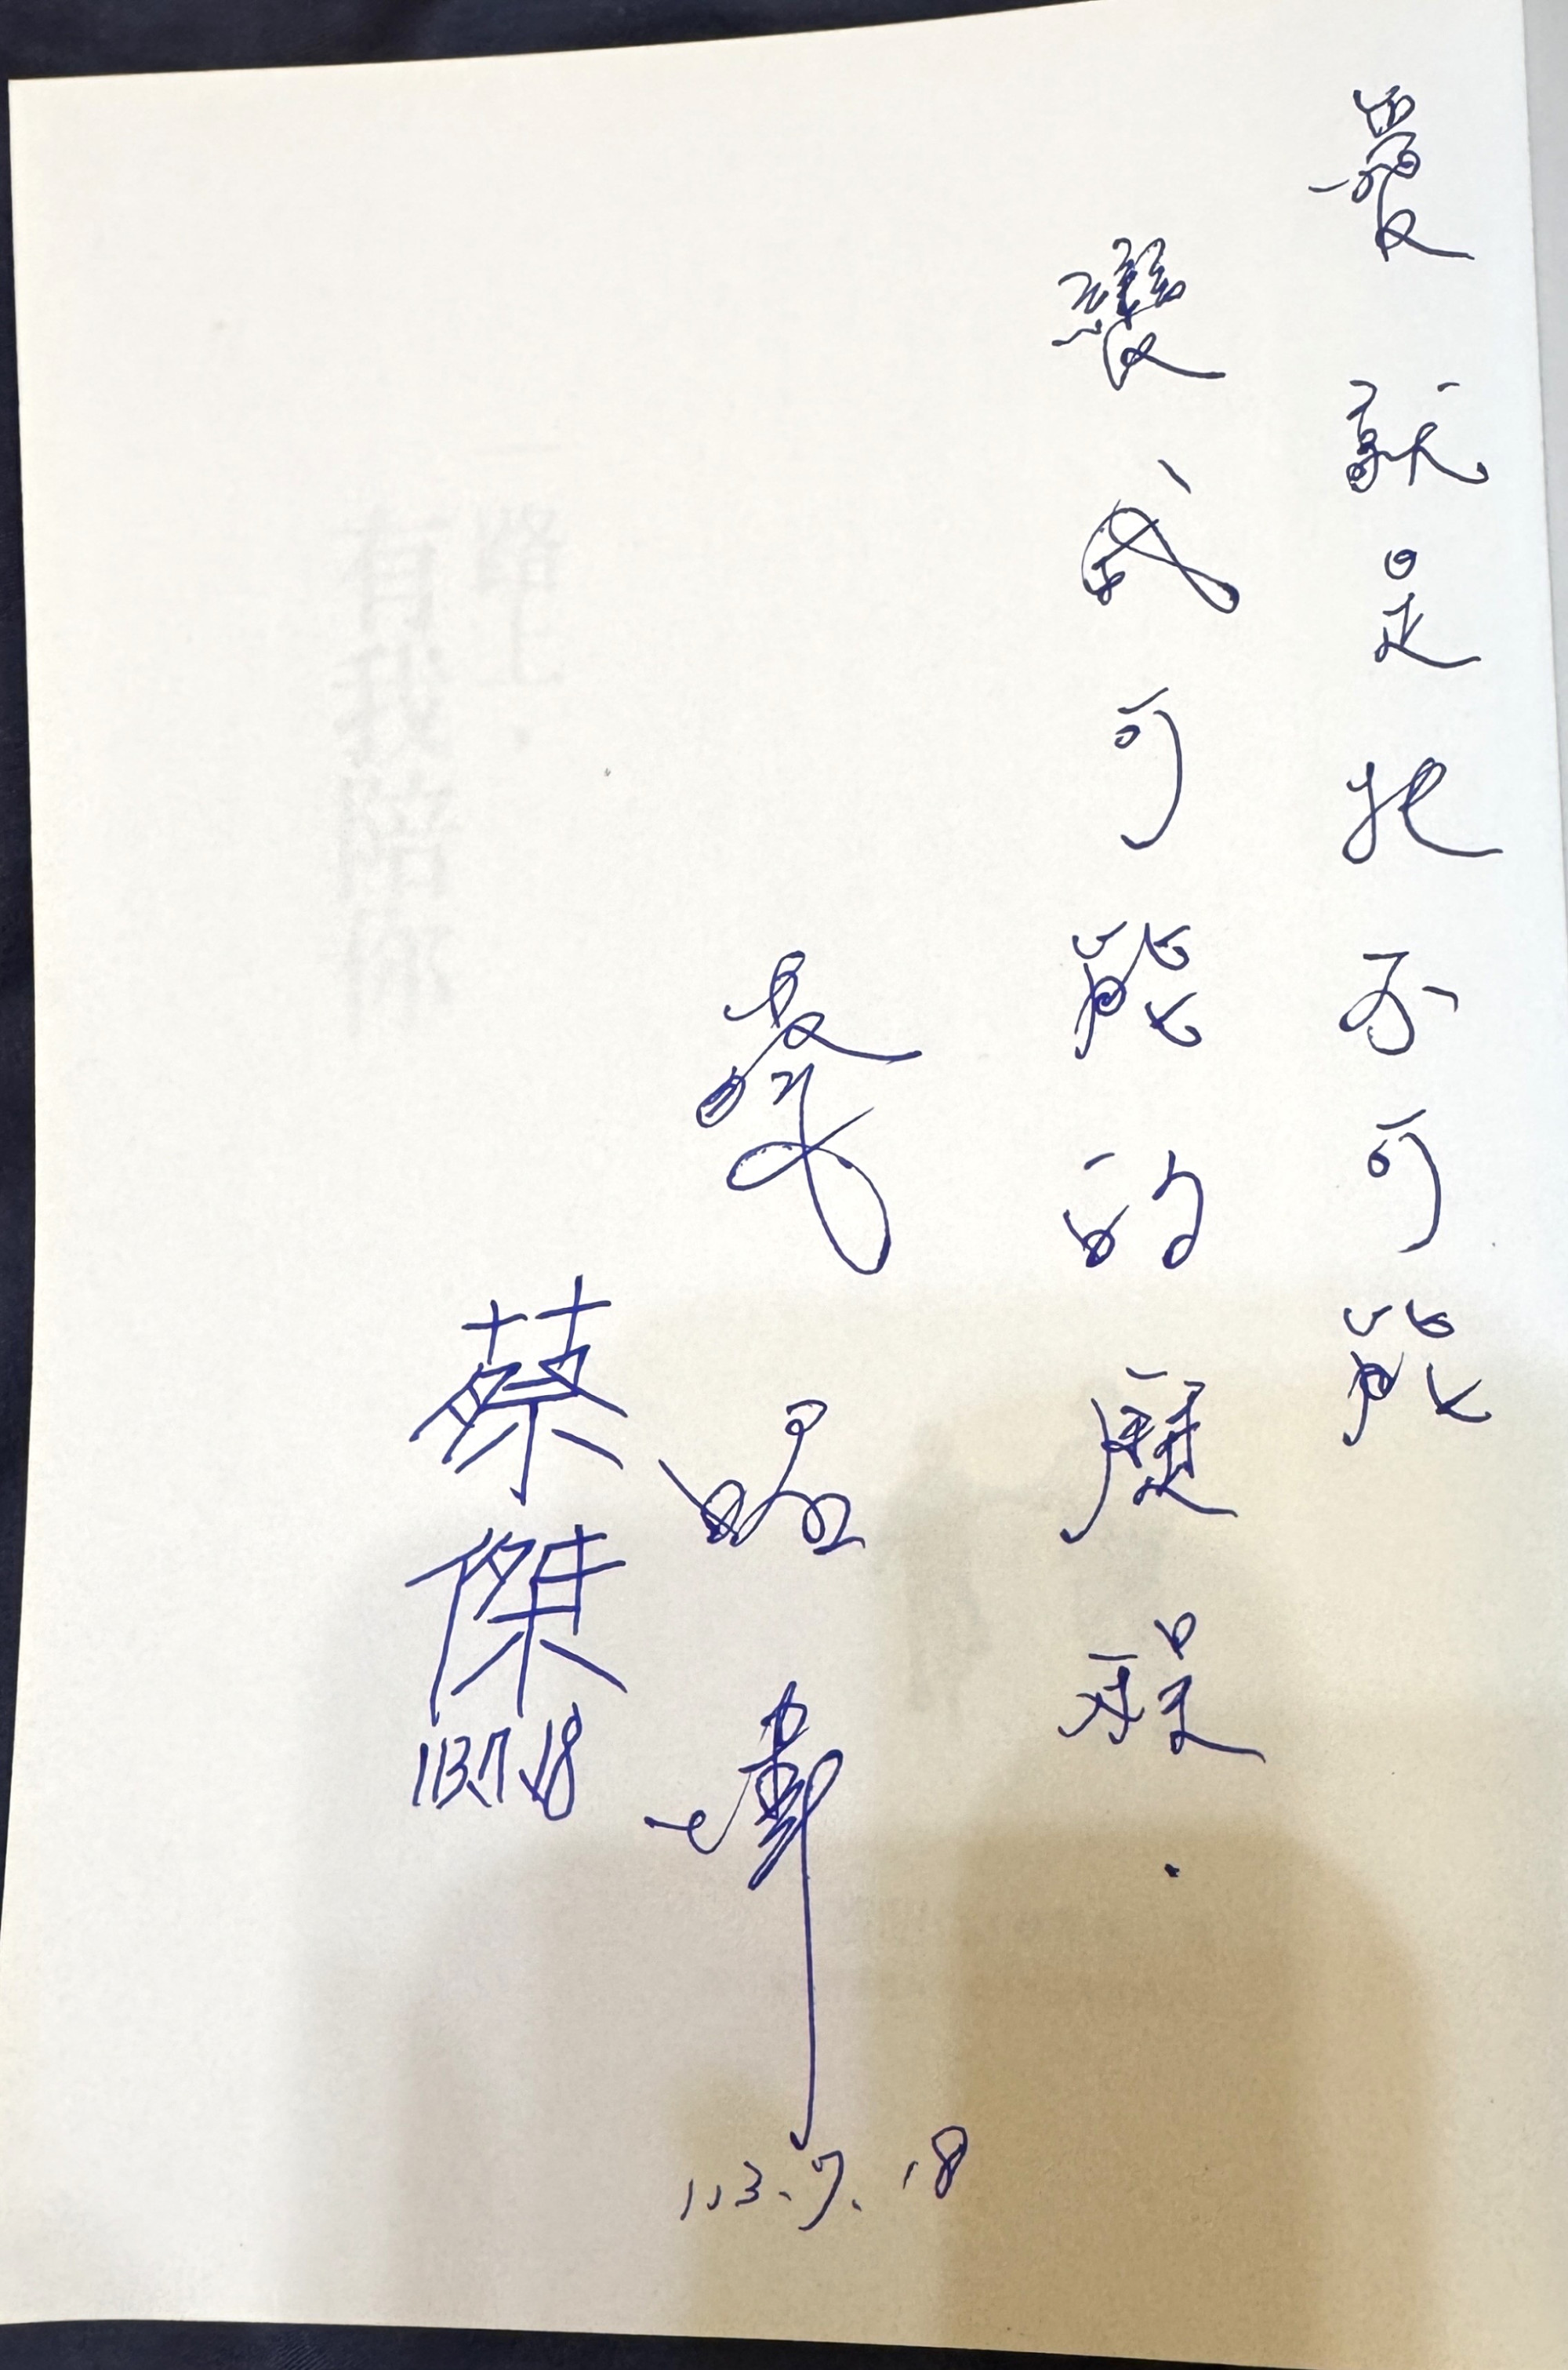 愛就是把不可能
變成可能的歷程.
113.7.18
蔡傑
113.7.18
一路上，
有我陪你